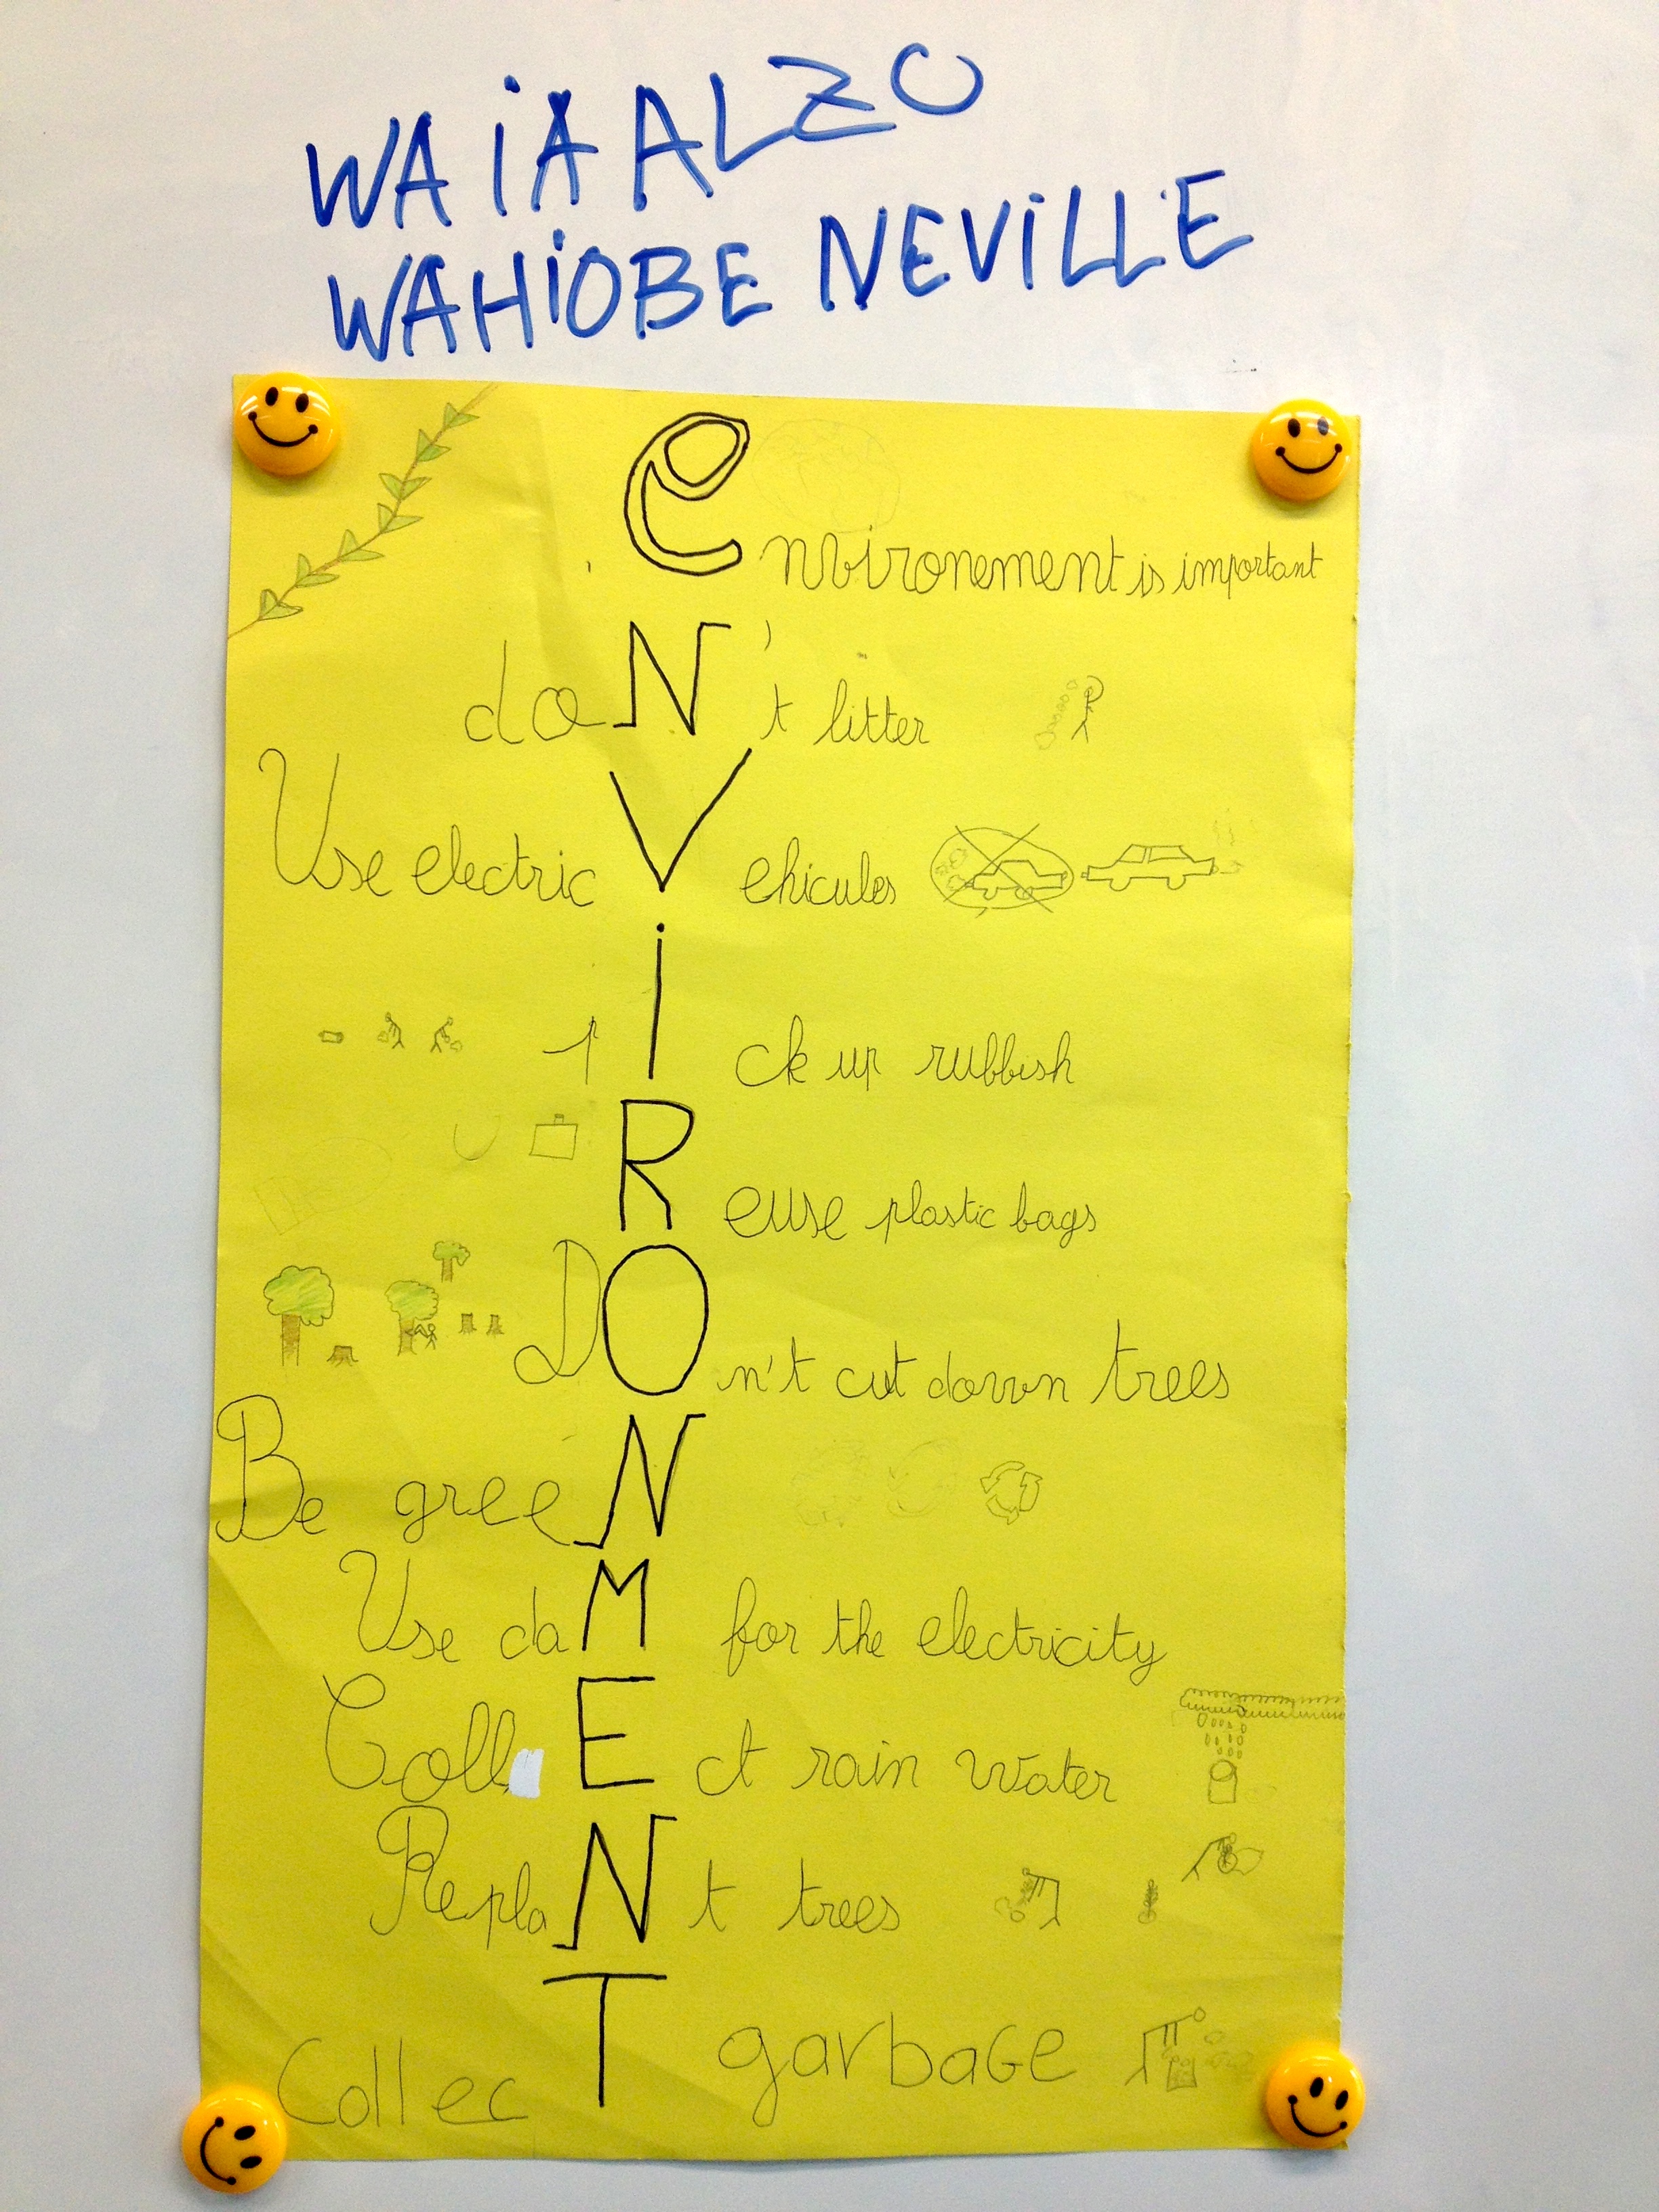 WAiA ALZO
WAHiOBE NEViLLE
environement is important
doN't litter
Use electric Vehicules
pick up rubbish
Reuse plastic bags
DOn't cut down trees
Be greeN
Use daM for the electricity
CollEct rain water
ReplaNt trees
CollecT garbaGe